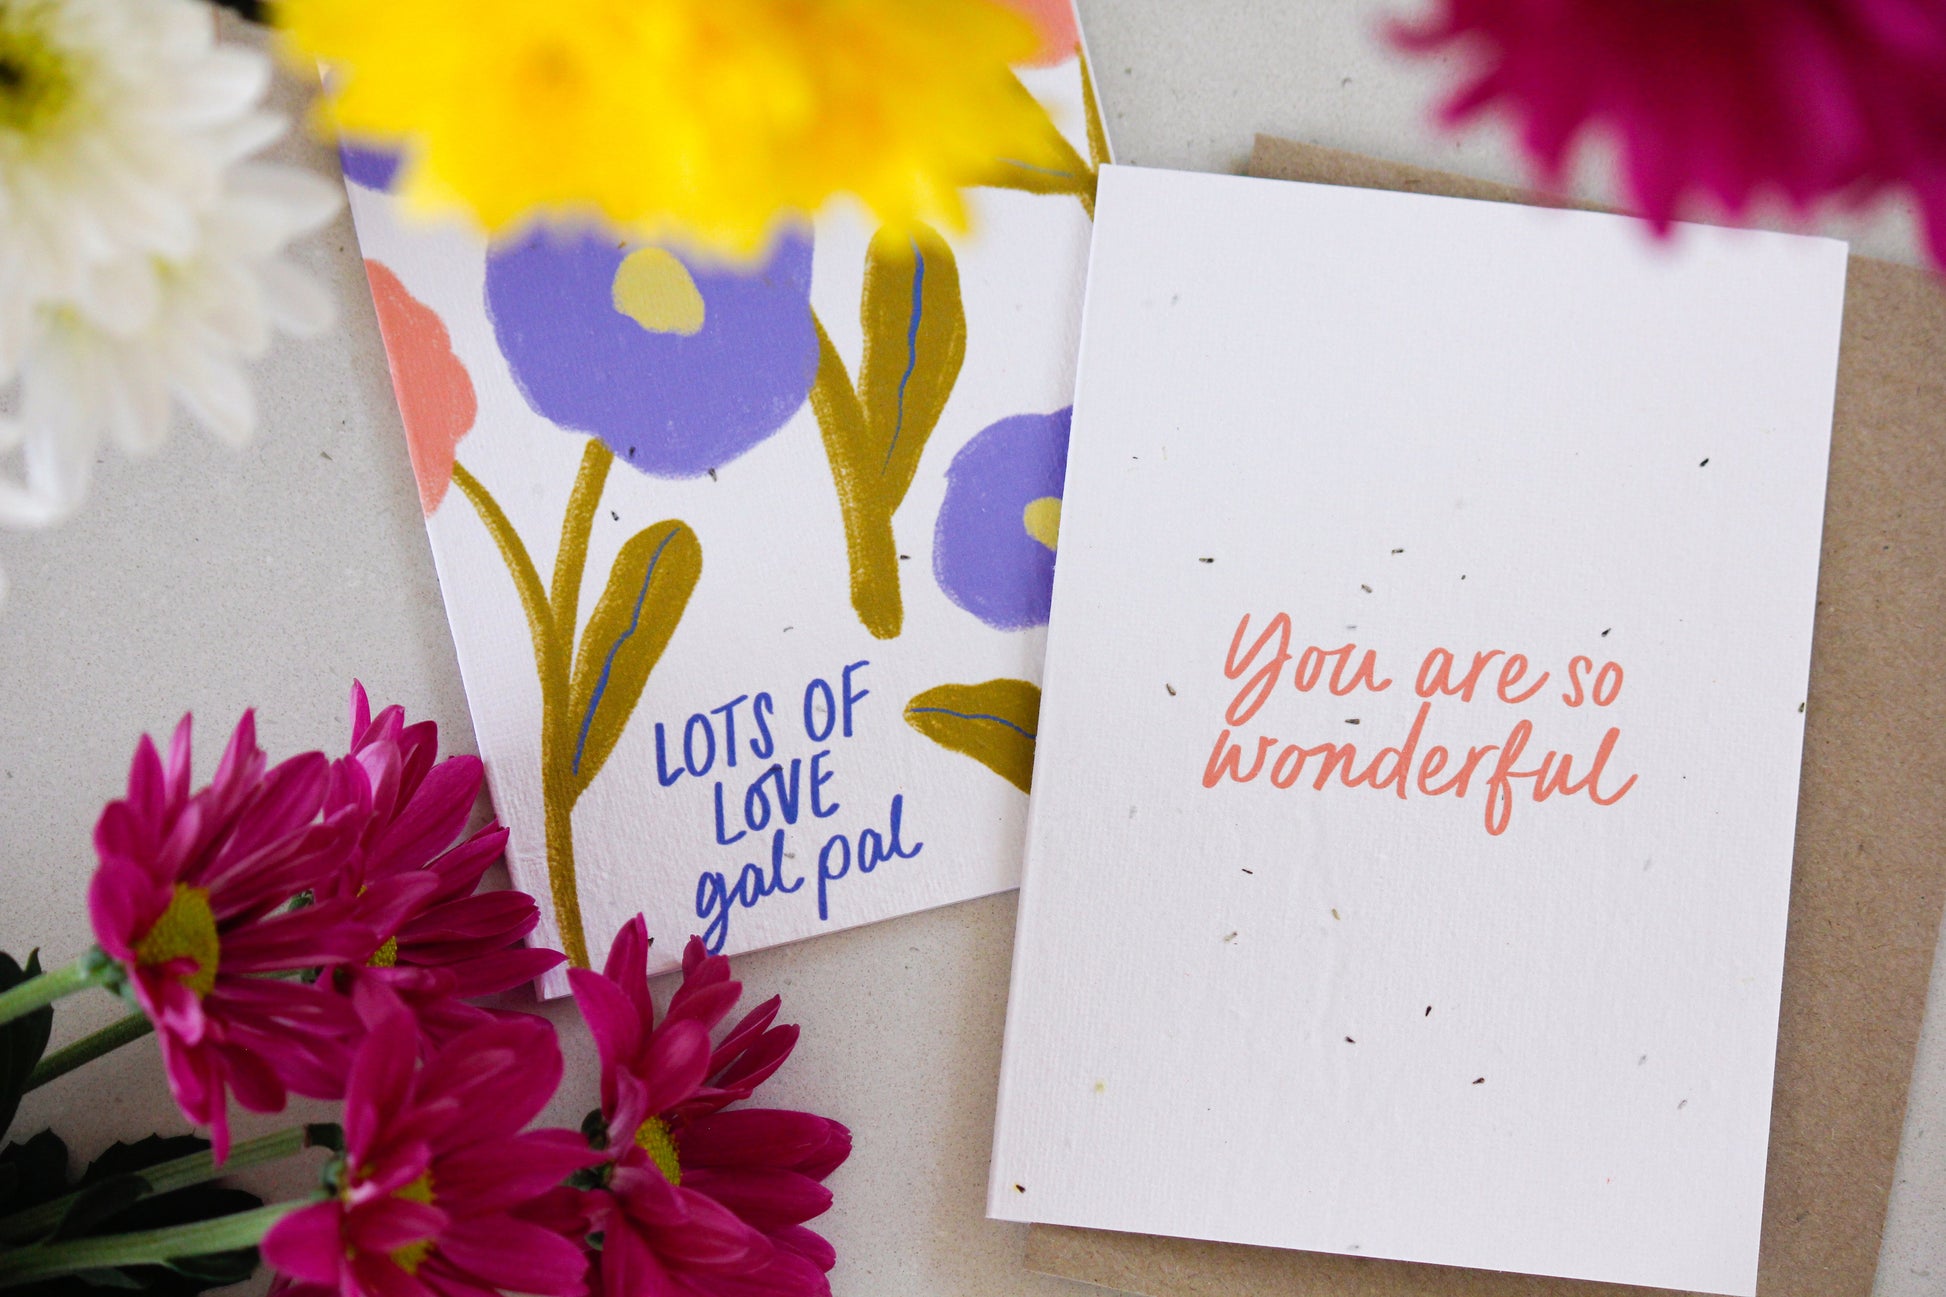 LOTS OF
LOVE
gal pal
You are so
wonderful